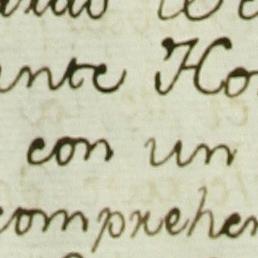 ante Ho
con un
comprehen